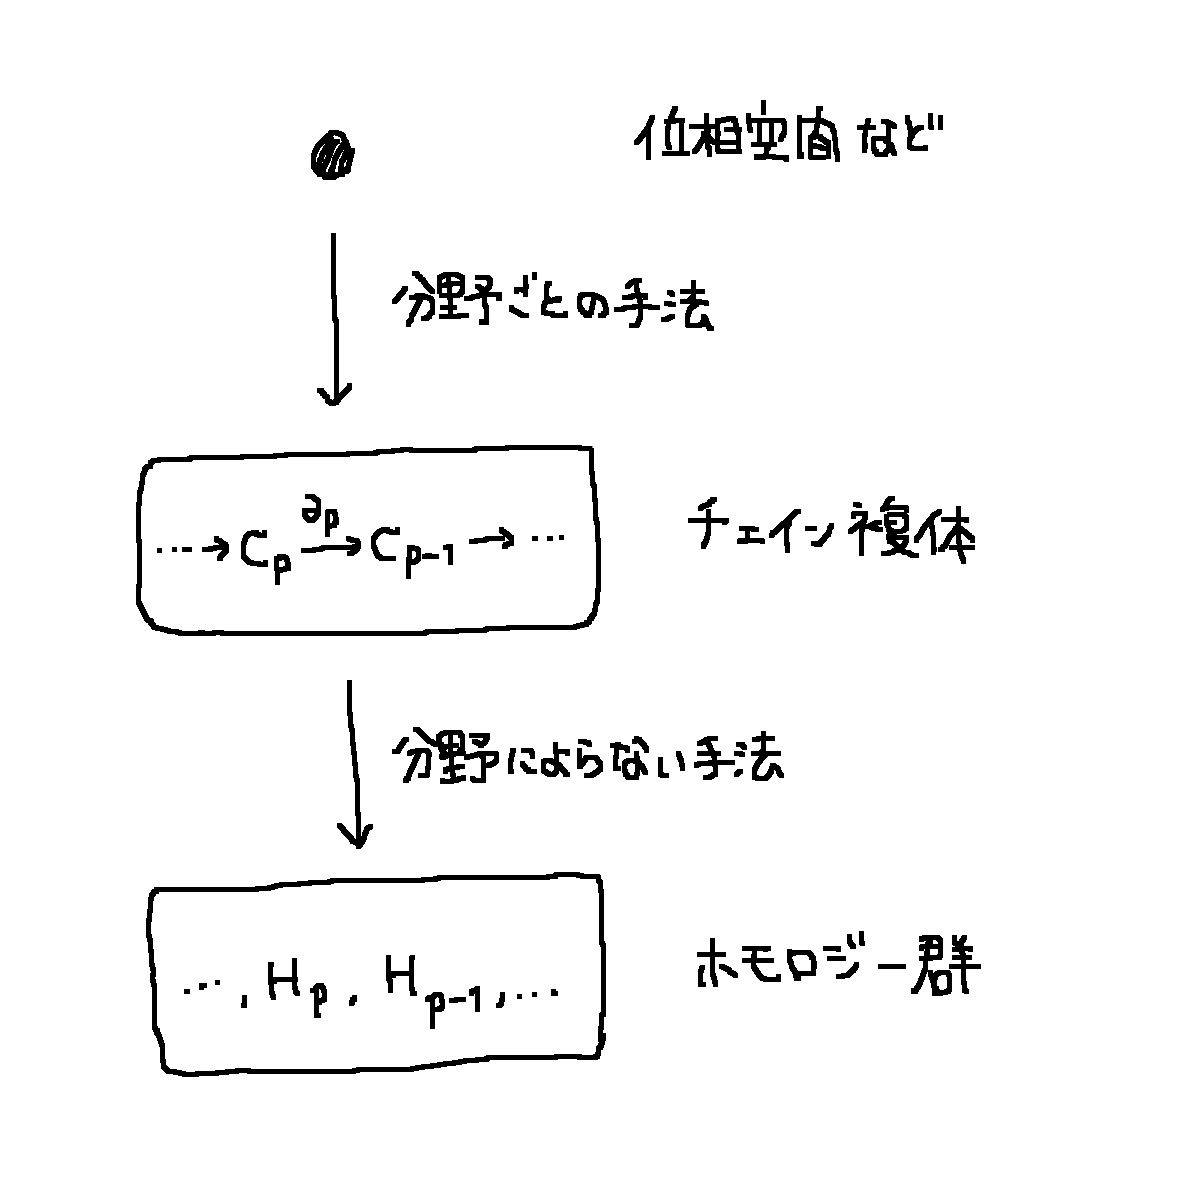 位相空間など
分野ごとの手法
… → C_p ∂_p→ C_{p-1} → …
チェイン複体
分野によらない手法
…, H_p, H_{p-1}, …
ホモロジー群